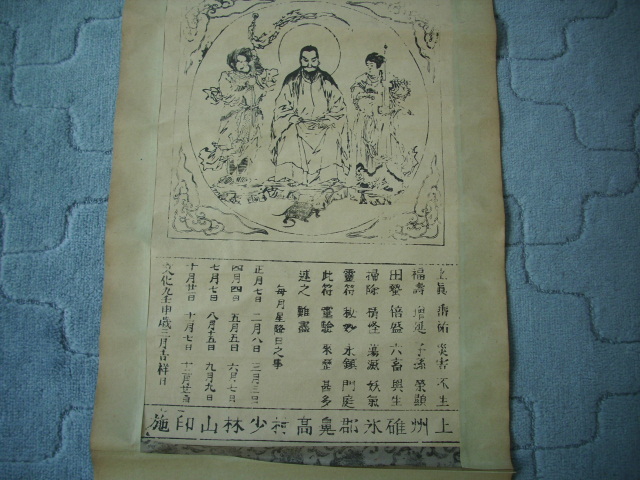 上眞垂祐 災害不生
福壽增延 子孫榮顯
田蠶倍盛 六畜興生
掃除精怪 蕩滅妖氣
靈符秘妙 永鎮門庭
此符靈驗 來歷甚多
述之難盡
每月星發日之事
正月七日 二月八日 三月三日
四月四日 五月五日 六月七日
七月七日 八月十五日 九月九日
十月廿一日 十一月七日 十二月廿七日
文化九壬申歲三月吉祥日
上州碓氷郡鼻高村少林山印施